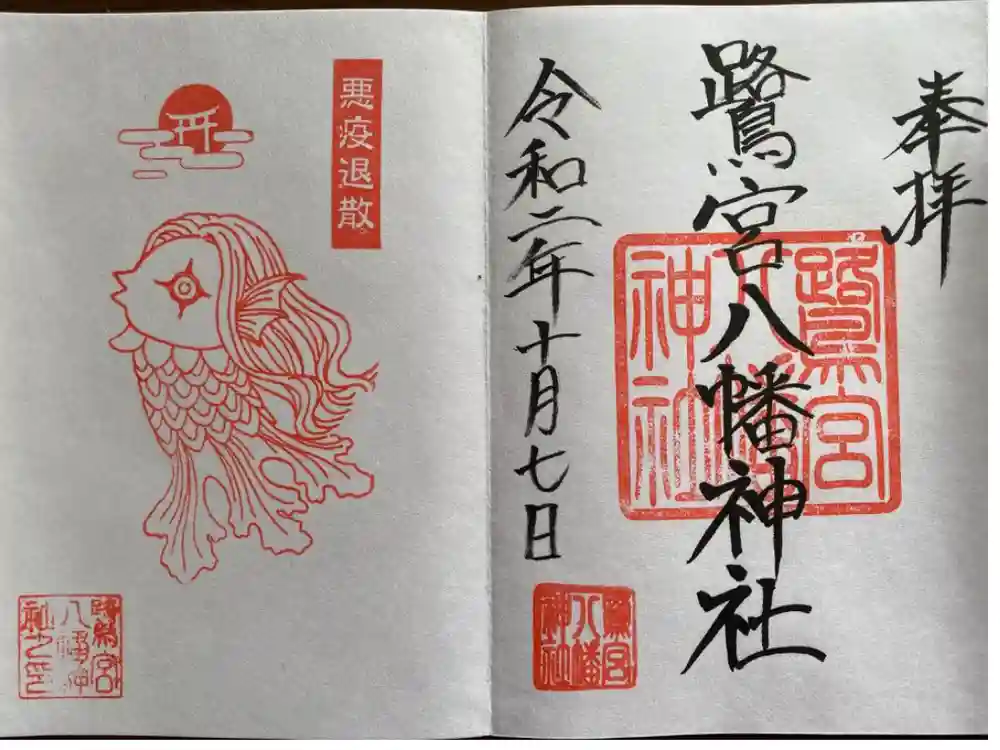 奉拝
鷺宮八幡神社
令和二年十月七日
鷺宮
八幡
神社
鷺宮
八幡
神社
悪疫退散。
鷺宮
八幡神
社之印